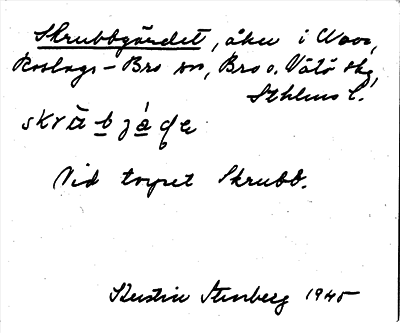 Skrubbgärdet, åker i Norr,
Roslags-Bro sn, Bro o. Vätö skg,
Sthlms l.
Vid torpet Skrubb.
Kerstin Stenberg 1945